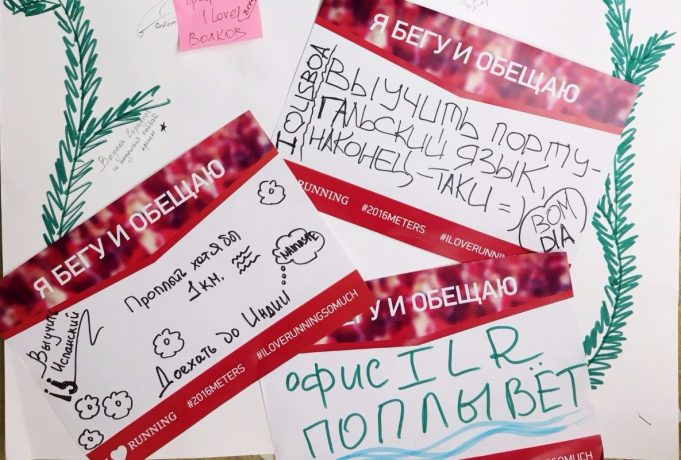 1 Love
ВОЛКОВ
Я БЕГУ И ОБЕЩАЮ
I ♡ LISBOA
ВЫУЧИТЬ ПОРТУ-
ГАЛЬСКИЙ ЯЗЫК,
НАКОНЕЦ-ТАКИ =)
BOM
DIA
RUNNING #2016METERS #ILOVERUNNINGSOMUCH
Выучить
и
Я БЕГУ И ОБЕЩАЮ
Проплыть хотя бы
1 км.
Доехать до Индии
Выучить
Испанский
I ♥ RUNNING #2016METERS #ILOVERUNNINGSOMUCH
ГУ И ОБЕЩАЮ
ОФИС ILR
ПОПЛЫВЁТ
#ILOVERUNNINGSOMUCH